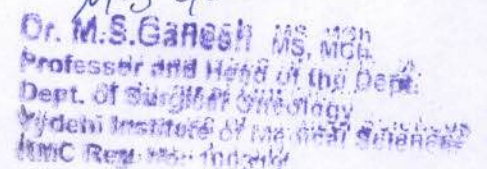 Dr. M.S.Ganesh MS, MCh
Professor and Head of the Dept.
Dept. of Surgical Oncology
Vydehi Institute of Medical Sciences
KMC Reg. No: